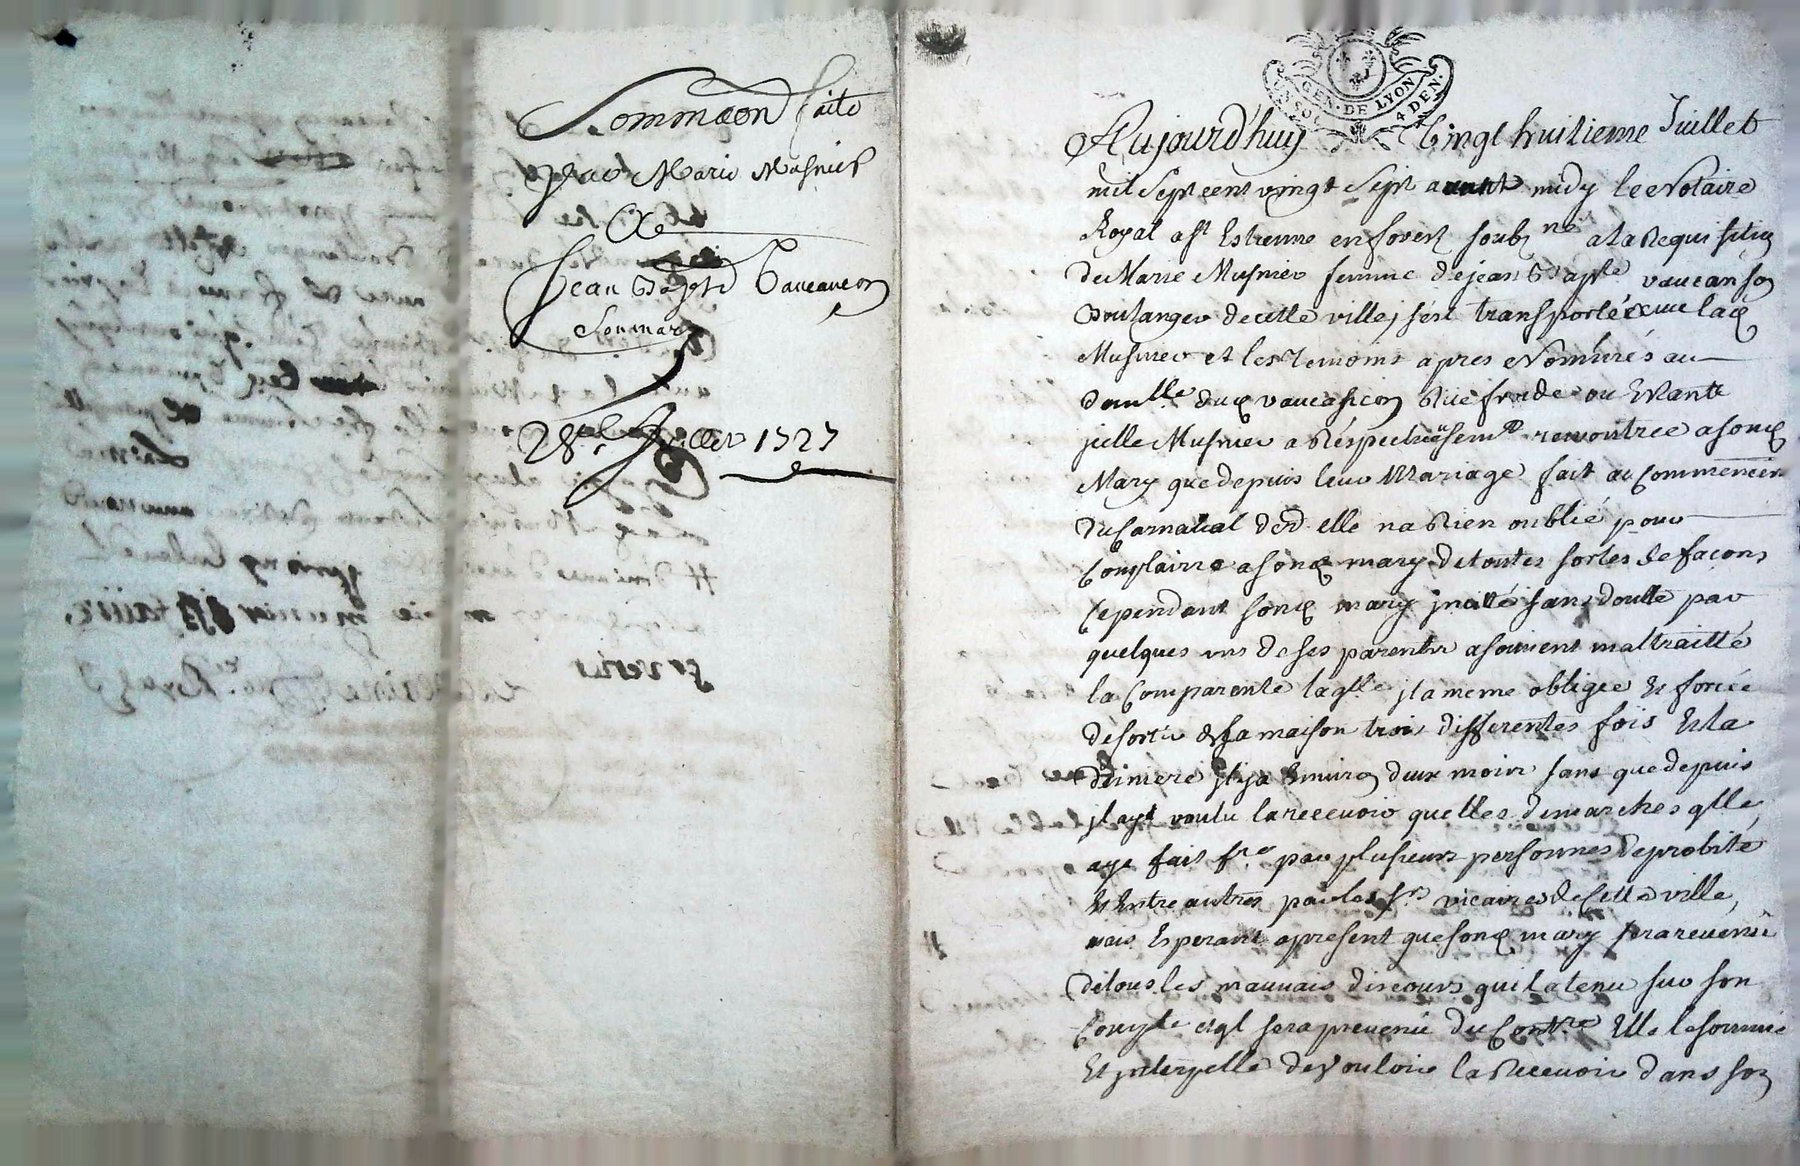 Sommaon faite
par Marie Musnier
A
Jean Bapt Vaucancon
son mary
28e Juillet 1727
GEN. DE LYON
4 DEN.
Aujourd'huy Vingt huitieme Juillet
mil Sept cent vingt Sept avant midy le Notaire
Royal a St Estienne en forest soubz ne a la Requisition
de Marie Musnier femme de jean Bapte vaucanson
Boulanger de cette ville, s'est transporté avec lad
Musnier et les Temoins apres Nommés au
domlle dud vaucasson Rue froide ou Estant
jcelle Musnier a Réspectueusemt remontree a sond
Mary que depuis leur Mariage fait au Commencemt
du Carnaval der elle na Rien oublié pour
Complairre a sond mary de toutes sortes de facons
Cependant sond mary jncité sans doutte par
quelques uns de ses parents a souvent maltraitté
la Comparente laqlle jl a meme obligee Et forcée
de sortir de sa maison trois differentes fois Et la
derniere jl ya Environ deux mois sans que depuis
jl ayt voulu la recevoir quelles demarches qlle
aye fait fre par plusieurs personnes de probité
Et Entre autres par les Srs vicaires de Cette ville,
mais Esperant apresent que sond mary sera revenu
de tous les mauvais discours quil a tenu sur son
Compte et ql sera prevenu du Contre Elle le somme
Et jnterpelle de Vouloir la Recevoir dans son